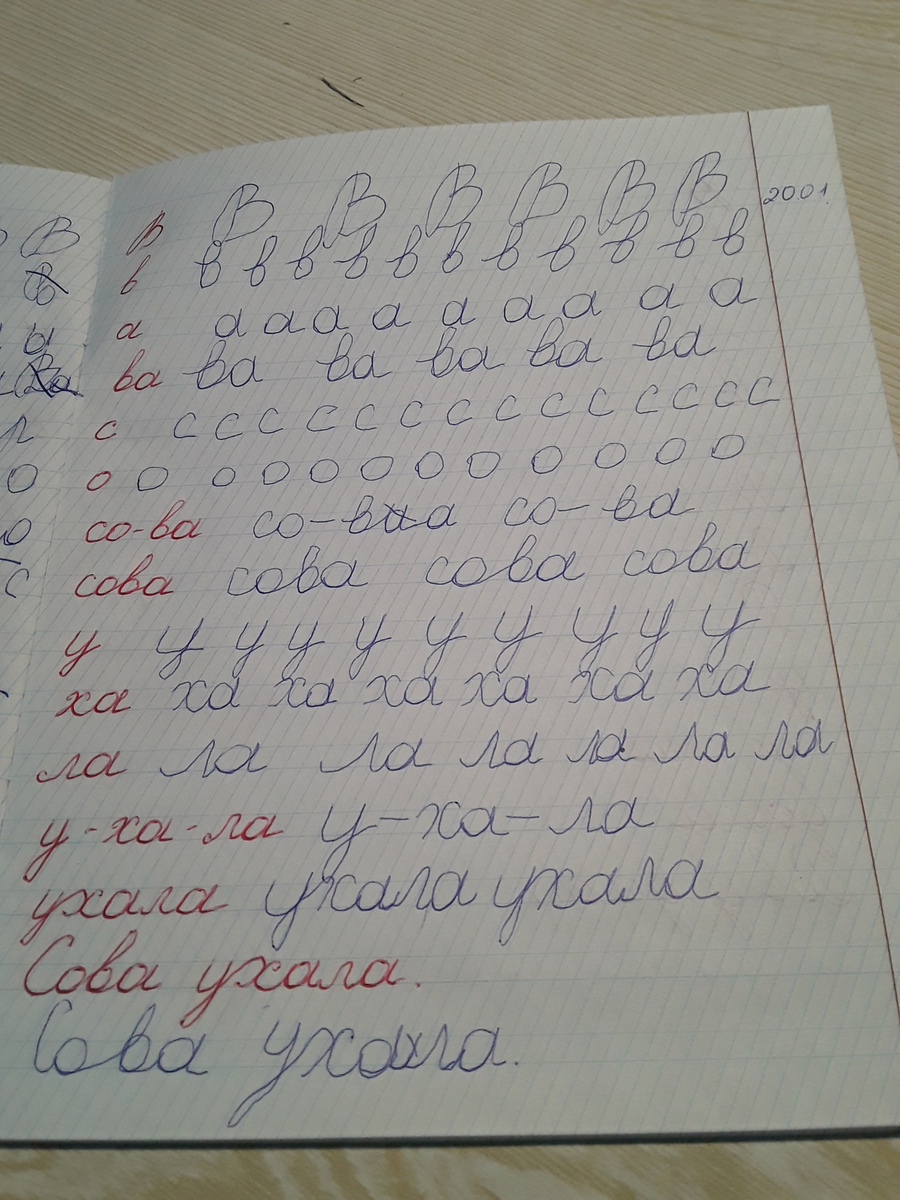 20.01.
В В В В В В В
в в в в в в в в в в в в
а а а а а а а а а а
ва ва ва ва ва ва
с с с с с с с с с с с с с с
о о о о о о о о о о о о
со-ва со-ва со-ва
сова сова сова сова
у у у у у у у у у у
ха ха ха ха ха ха ха
ла ла ла ла ла ла ла
у-ха-ла у-ха-ла
ухала ухала ухала
Сова ухала.
Сова ухала.